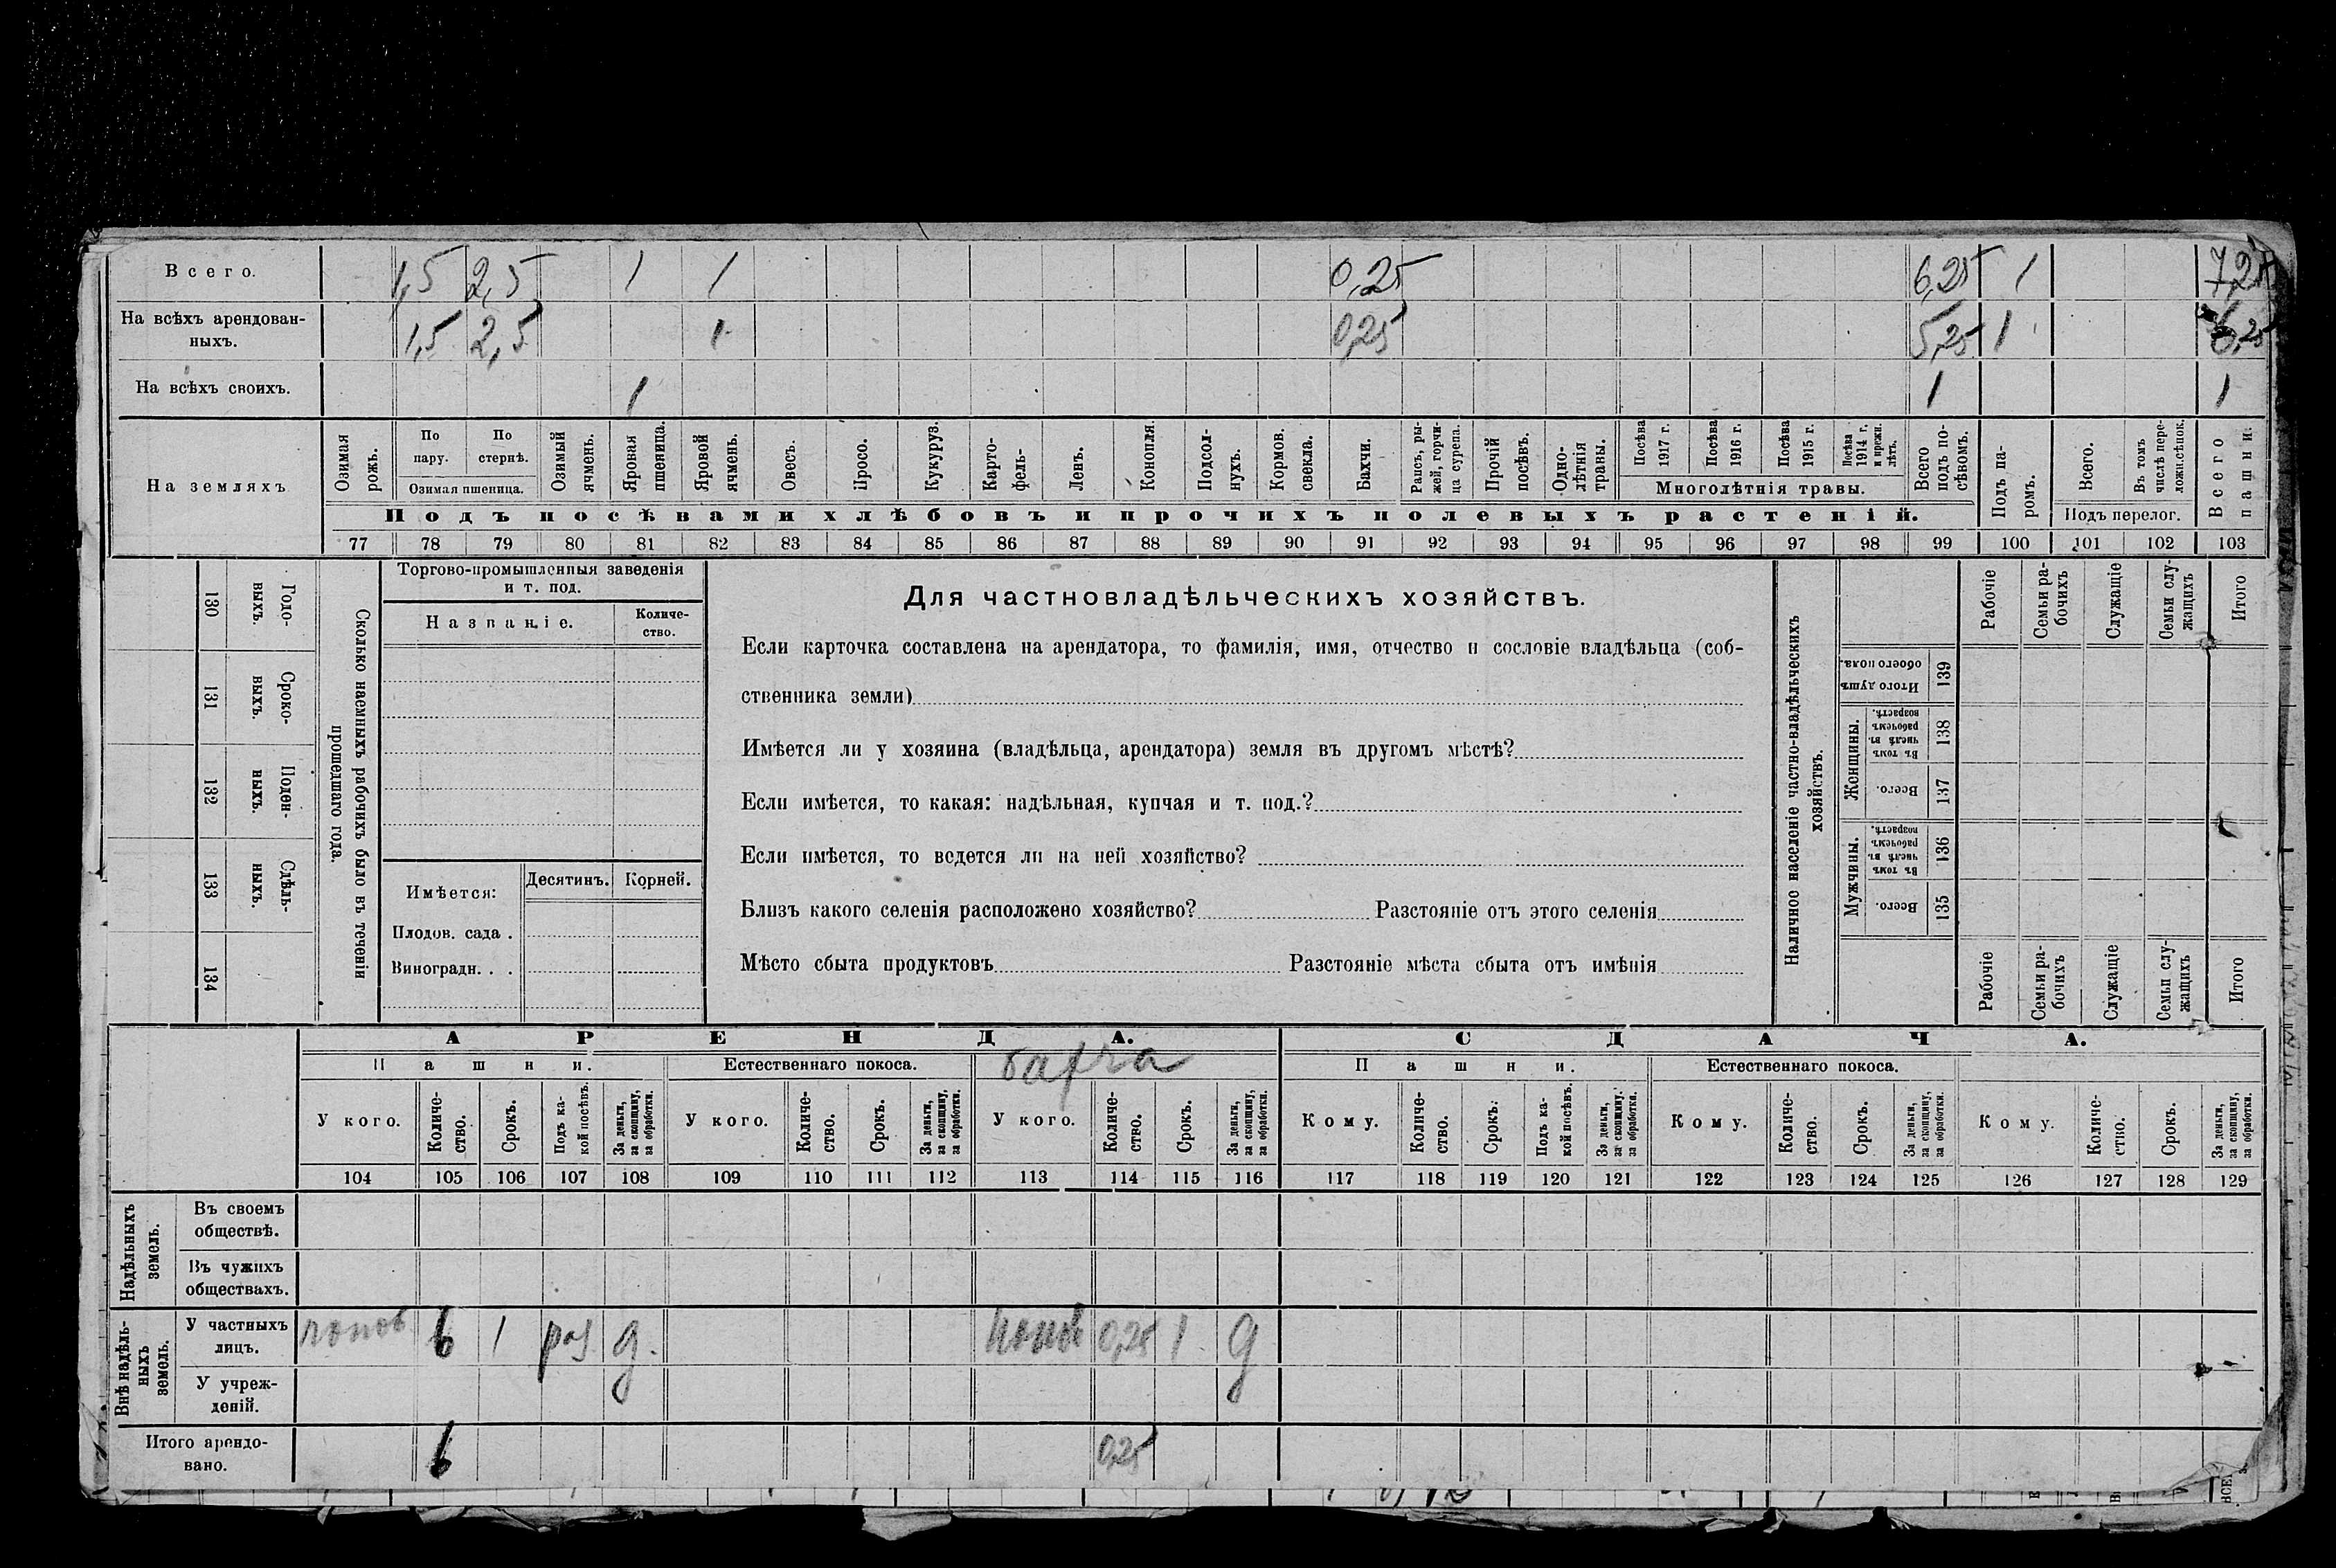 Всего. 1,5 2,5 1 1 0,25 6,25 1 7,25
На всѣхъ арендован-
ныхъ. 1,5 2,5 1 0,25 5,25 1 6,25
На всѣхъ своихъ. 1 1 1
На земляхъ
Озимая рожь.
По пару.
По стернѣ.
Озимая пшеница.
Озимый ячмень.
Яровая пшеница.
Яровой ячмень.
Овесъ.
Просо.
Кукуруз.
Карто-
фель-
Ленъ.
Конопля.
Подсол-
нухъ.
Кормов.
свекла.
Бахчи.
Рапсъ, ры-
жей, горчи-
ца сурепа.
Прочій
посѣвъ.
Одно-
лѣтнія
травы.
Посѣва
1917 г.
Посѣва
1916 г.
Посѣва
1915 г.
Посѣва
1914 г.
и прежн.
лѣтъ.
Многолѣтнія травы.
Всего
подъ по-
сѣвомъ.
Подъ посѣвами хлѣбовъ и прочихъ полевыхъ растеній.
Подъ па-
ромъ.
Всего.
Въ томъ
числѣ пере-
ложн.сѣнок.
Подъ перелог.
Всего
пашни.
77 78 79 80 81 82 83 84 85 86 87 88 89 90 91 92 93 94 95 96 97 98 99 100 101 102 103
Годо-
выхъ.
130
Сроко-
выхъ.
131
Поден-
ныхъ.
132
Сдѣль-
ныхъ.
133
134
Сколько наемныхъ рабочихъ было въ теченіи
прошедшаго года.
Торгово-промышленныя заведенія
и т. под.
Названіе.
Количе-
ство.
Имѣется:
Десятинъ.
Корней.
Плодов. сада .
Виноградн. . .
Для частновладѣльческихъ хозяйствъ.
Если карточка составлена на арендатора, то фамилія, имя, отчество и сословіе владѣльца (соб-
ственника земли)
Имѣется ли у хозяина (владѣльца, арендатора) земля въ другомъ мѣстѣ?
Если имѣется, то какая: надѣльная, купчая и т. под.?
Если имѣется, то ведется ли на ней хозяйство?
Близъ какого селенія расположено хозяйство? Разстояніе отъ этого селенія
Мѣсто сбыта продуктовъ Разстояніе мѣста сбыта отъ имѣнія
Наличное населеніе частно-владѣльческихъ
хозяйствъ.
Итого душъ
обоего пола.
139
Женщины.
Въ томъ
числѣ въ
рабочемъ
возрастѣ.
138
Всего.
137
Мужчины.
Въ томъ
числѣ въ
рабочемъ
возрастѣ.
136
Всего.
135
Рабочіе
Семьи ра-
бочихъ
Служащіе
Семьи слу-
жащихъ
Итого
Рабочіе
Семьи ра-
бочихъ
Служащіе
Семьи слу-
жащихъ
Итого
АРЕНДА.
СДАЧА.
Пашни.
Естественнаго покоса.
бахча
Пашни.
Естественнаго покоса.
У кого.
Количе-
ство.
Срокъ.
Подъ ка-
кой посѣвъ.
За деньги,
за скопщину,
за обработки.
У кого.
Количе-
ство.
Срокъ.
За деньги,
за скопщину,
за обработки.
У кого.
Количе-
ство.
Срокъ.
За деньги,
за скопщину,
за обработки.
Кому.
Количе-
ство.
Срокъ.
Подъ ка-
кой посѣвъ.
За деньги,
за скопщину,
за обработки.
Кому.
Количе-
ство.
Срокъ.
За деньги,
за скопщину,
за обработки.
Кому.
Количе-
ство.
Срокъ.
За деньги,
за скопщину,
за обработки.
104 105 106 107 108 109 110 111 112 113 114 115 116 117 118 119 120 121 122 123 124 125 126 127 128 129
Надѣльныхъ
земель.
Въ своемъ
обществѣ.
Въ чужихъ
обществахъ.
Внѣ надѣль-
ныхъ
земель.
У частныхъ
лицъ.
попов 6 1 раз д. попов 0,25 1 д
У учреж-
деній.
Итого арендо-
вано.
6 0,25